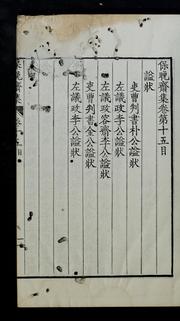 保晩齋集卷第十五目
諡狀
吏曹判書朴公諡狀
左議政李公諡狀
左議政容齋李公諡狀
吏曹判書金公諡狀
左議政李公諡狀
保晩齋集
卷十五目